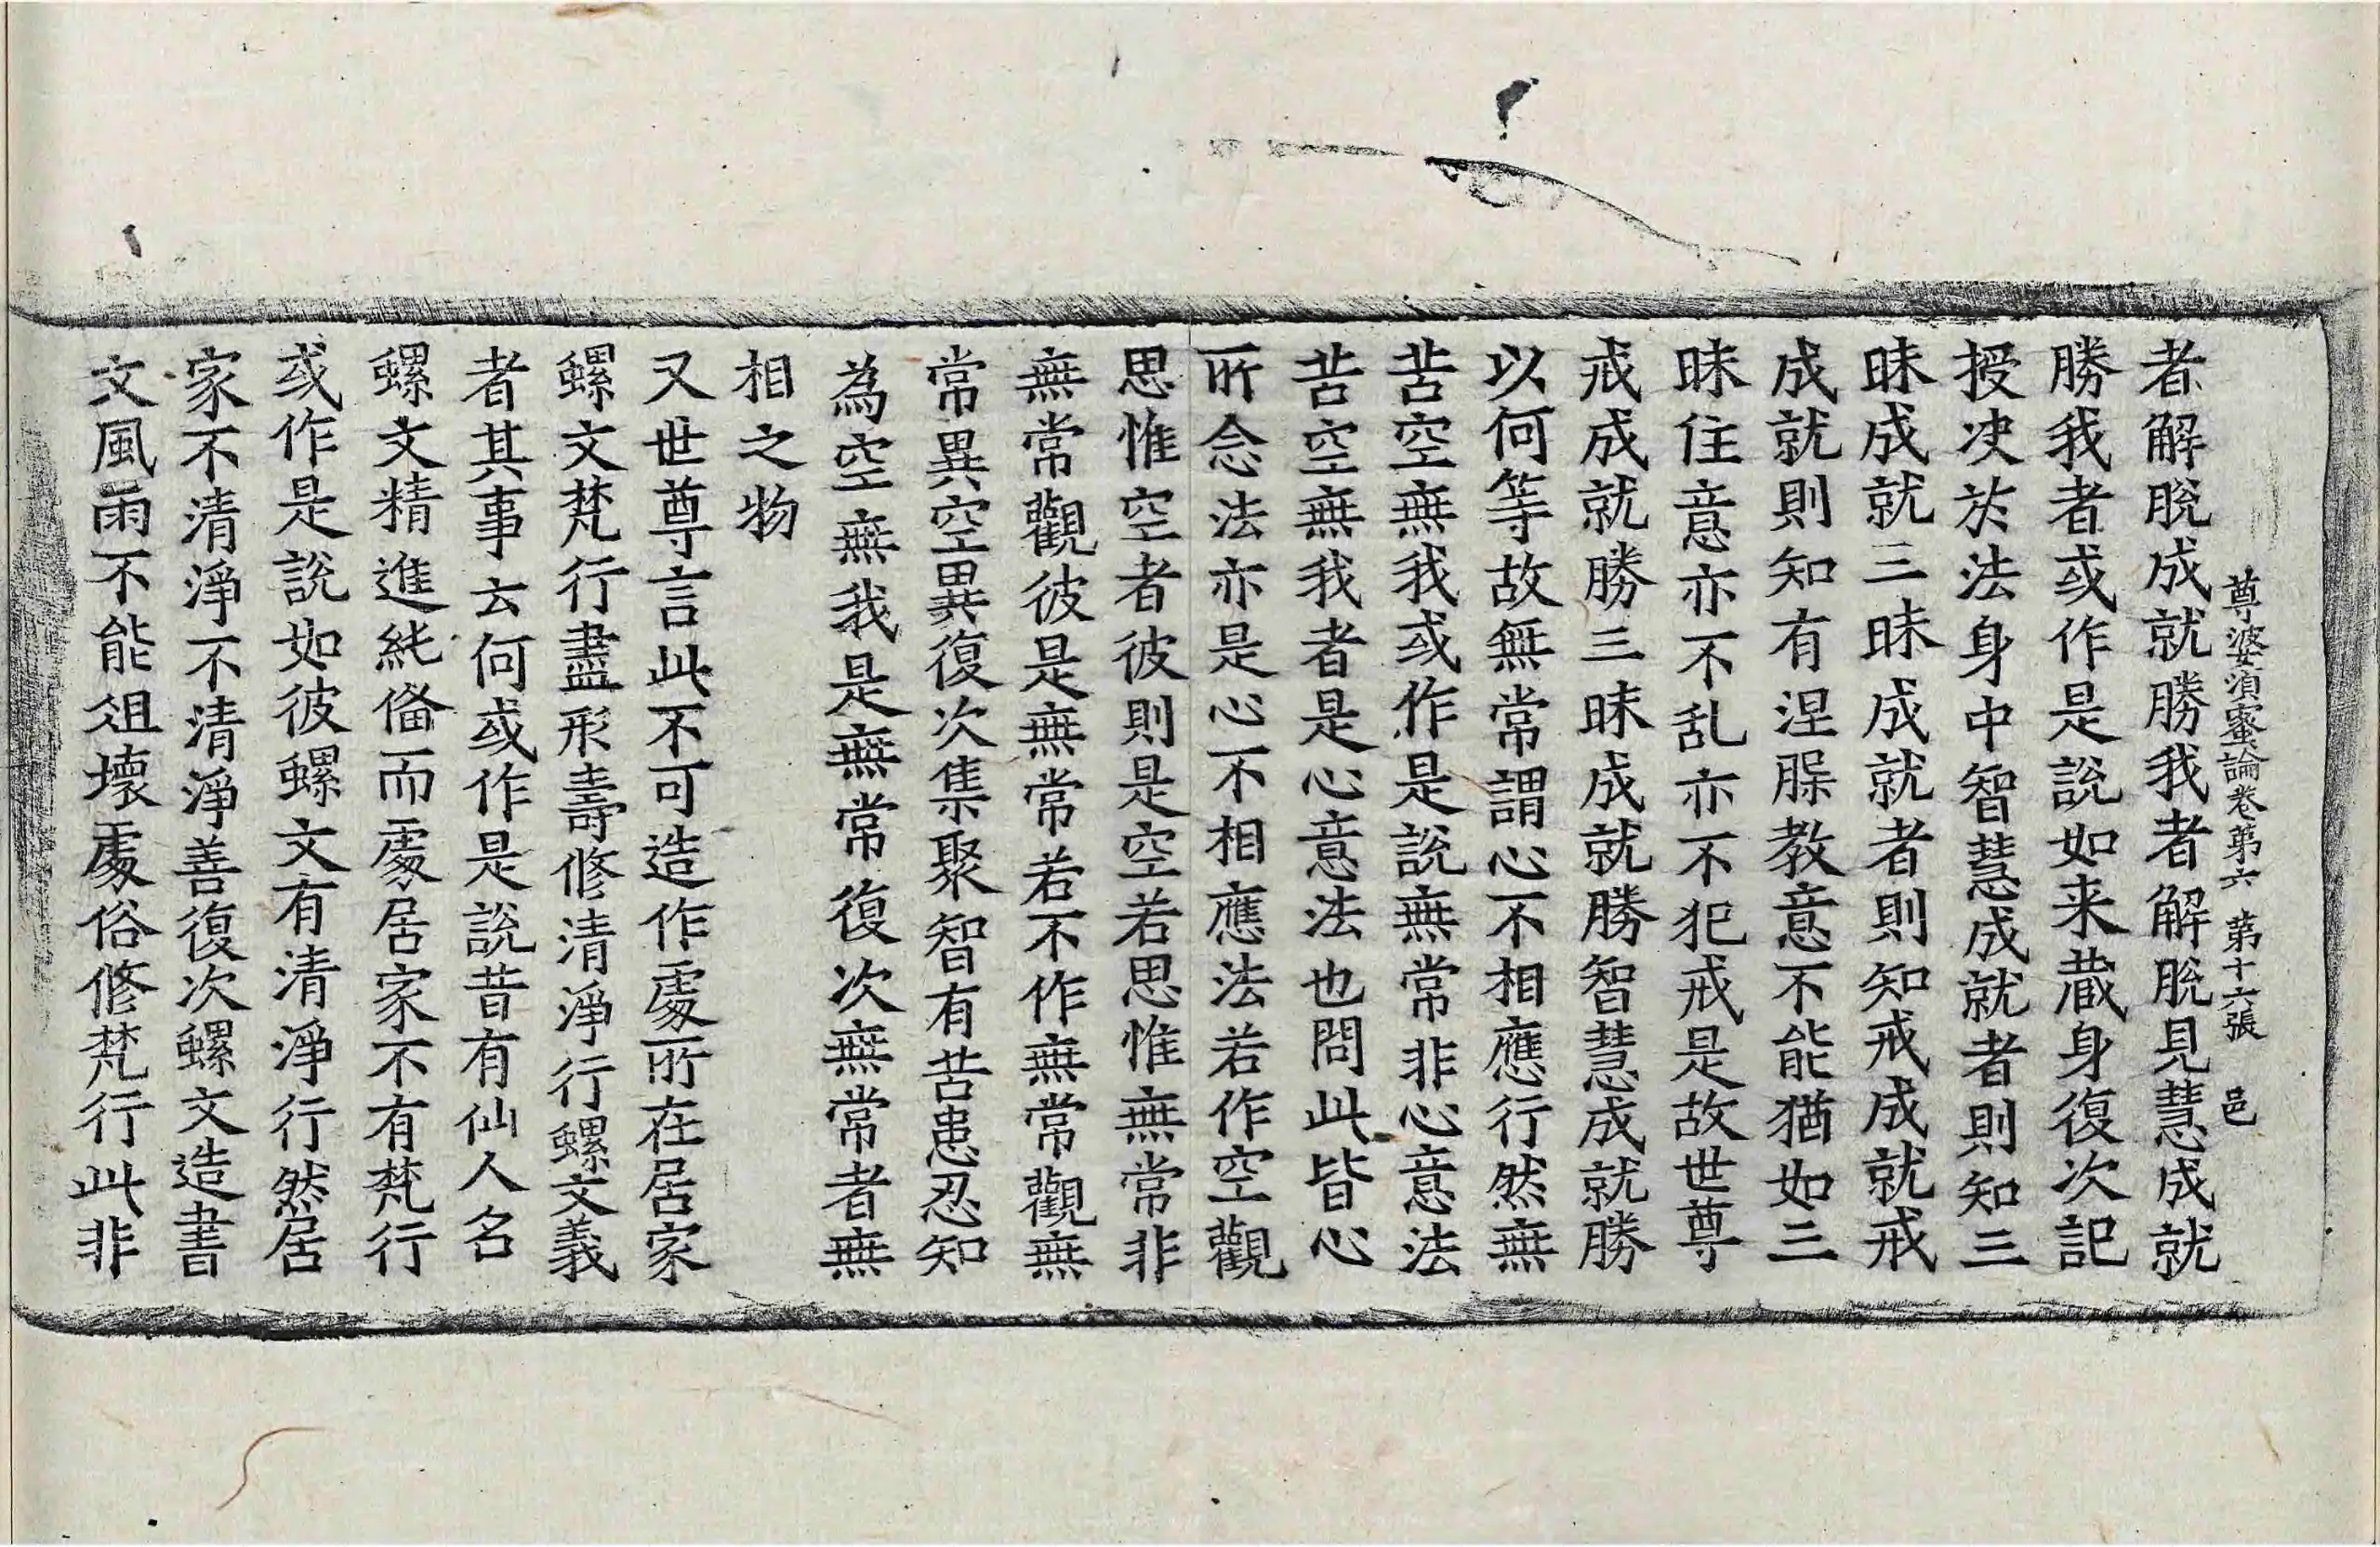 尊婆須蜜論卷第六　第十六張　邑
者解脫成就勝我者解脫見慧成就
勝我者或作是說如来藏身復次記
授决於法身中智慧成就者則知三
昧成就三昧成就者則知戒成就戒
成就則知有涅槃教意不能猶如三
昧住意亦不乱亦不犯戒是故世尊
戒成就勝三昧成就勝智慧成就勝
以何等故無常謂心不相應行然無
苦空無我或作是說無常非心意法
苦空無我者是心意法也問此皆心
所念法亦是心不相應法若作空觀
思惟空者彼則是空若思惟無常非
無常觀彼是無常若不作無常觀無
常異空異復次集聚智有苦患忍知
為空無我是無常復次無常者無
相之物
又世尊言此不可造作處所在居家
螺文梵行盡形壽修清淨行螺文義
者其事云何或作是說昔有仙人名
螺文精進純俻而處居家不有梵行
或作是說如彼螺文有清淨行然居
家不清淨不清淨善復次螺文造書
文風雨不能俎壞處俗修梵行此非